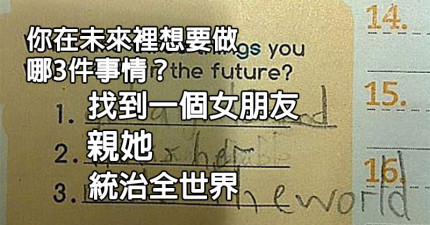 14.
你在未來裡想要做
哪3件事情？
things you
the future?
15.
1. 找到一個女朋友
2. 親她
16.
3. 統治全世界
the world